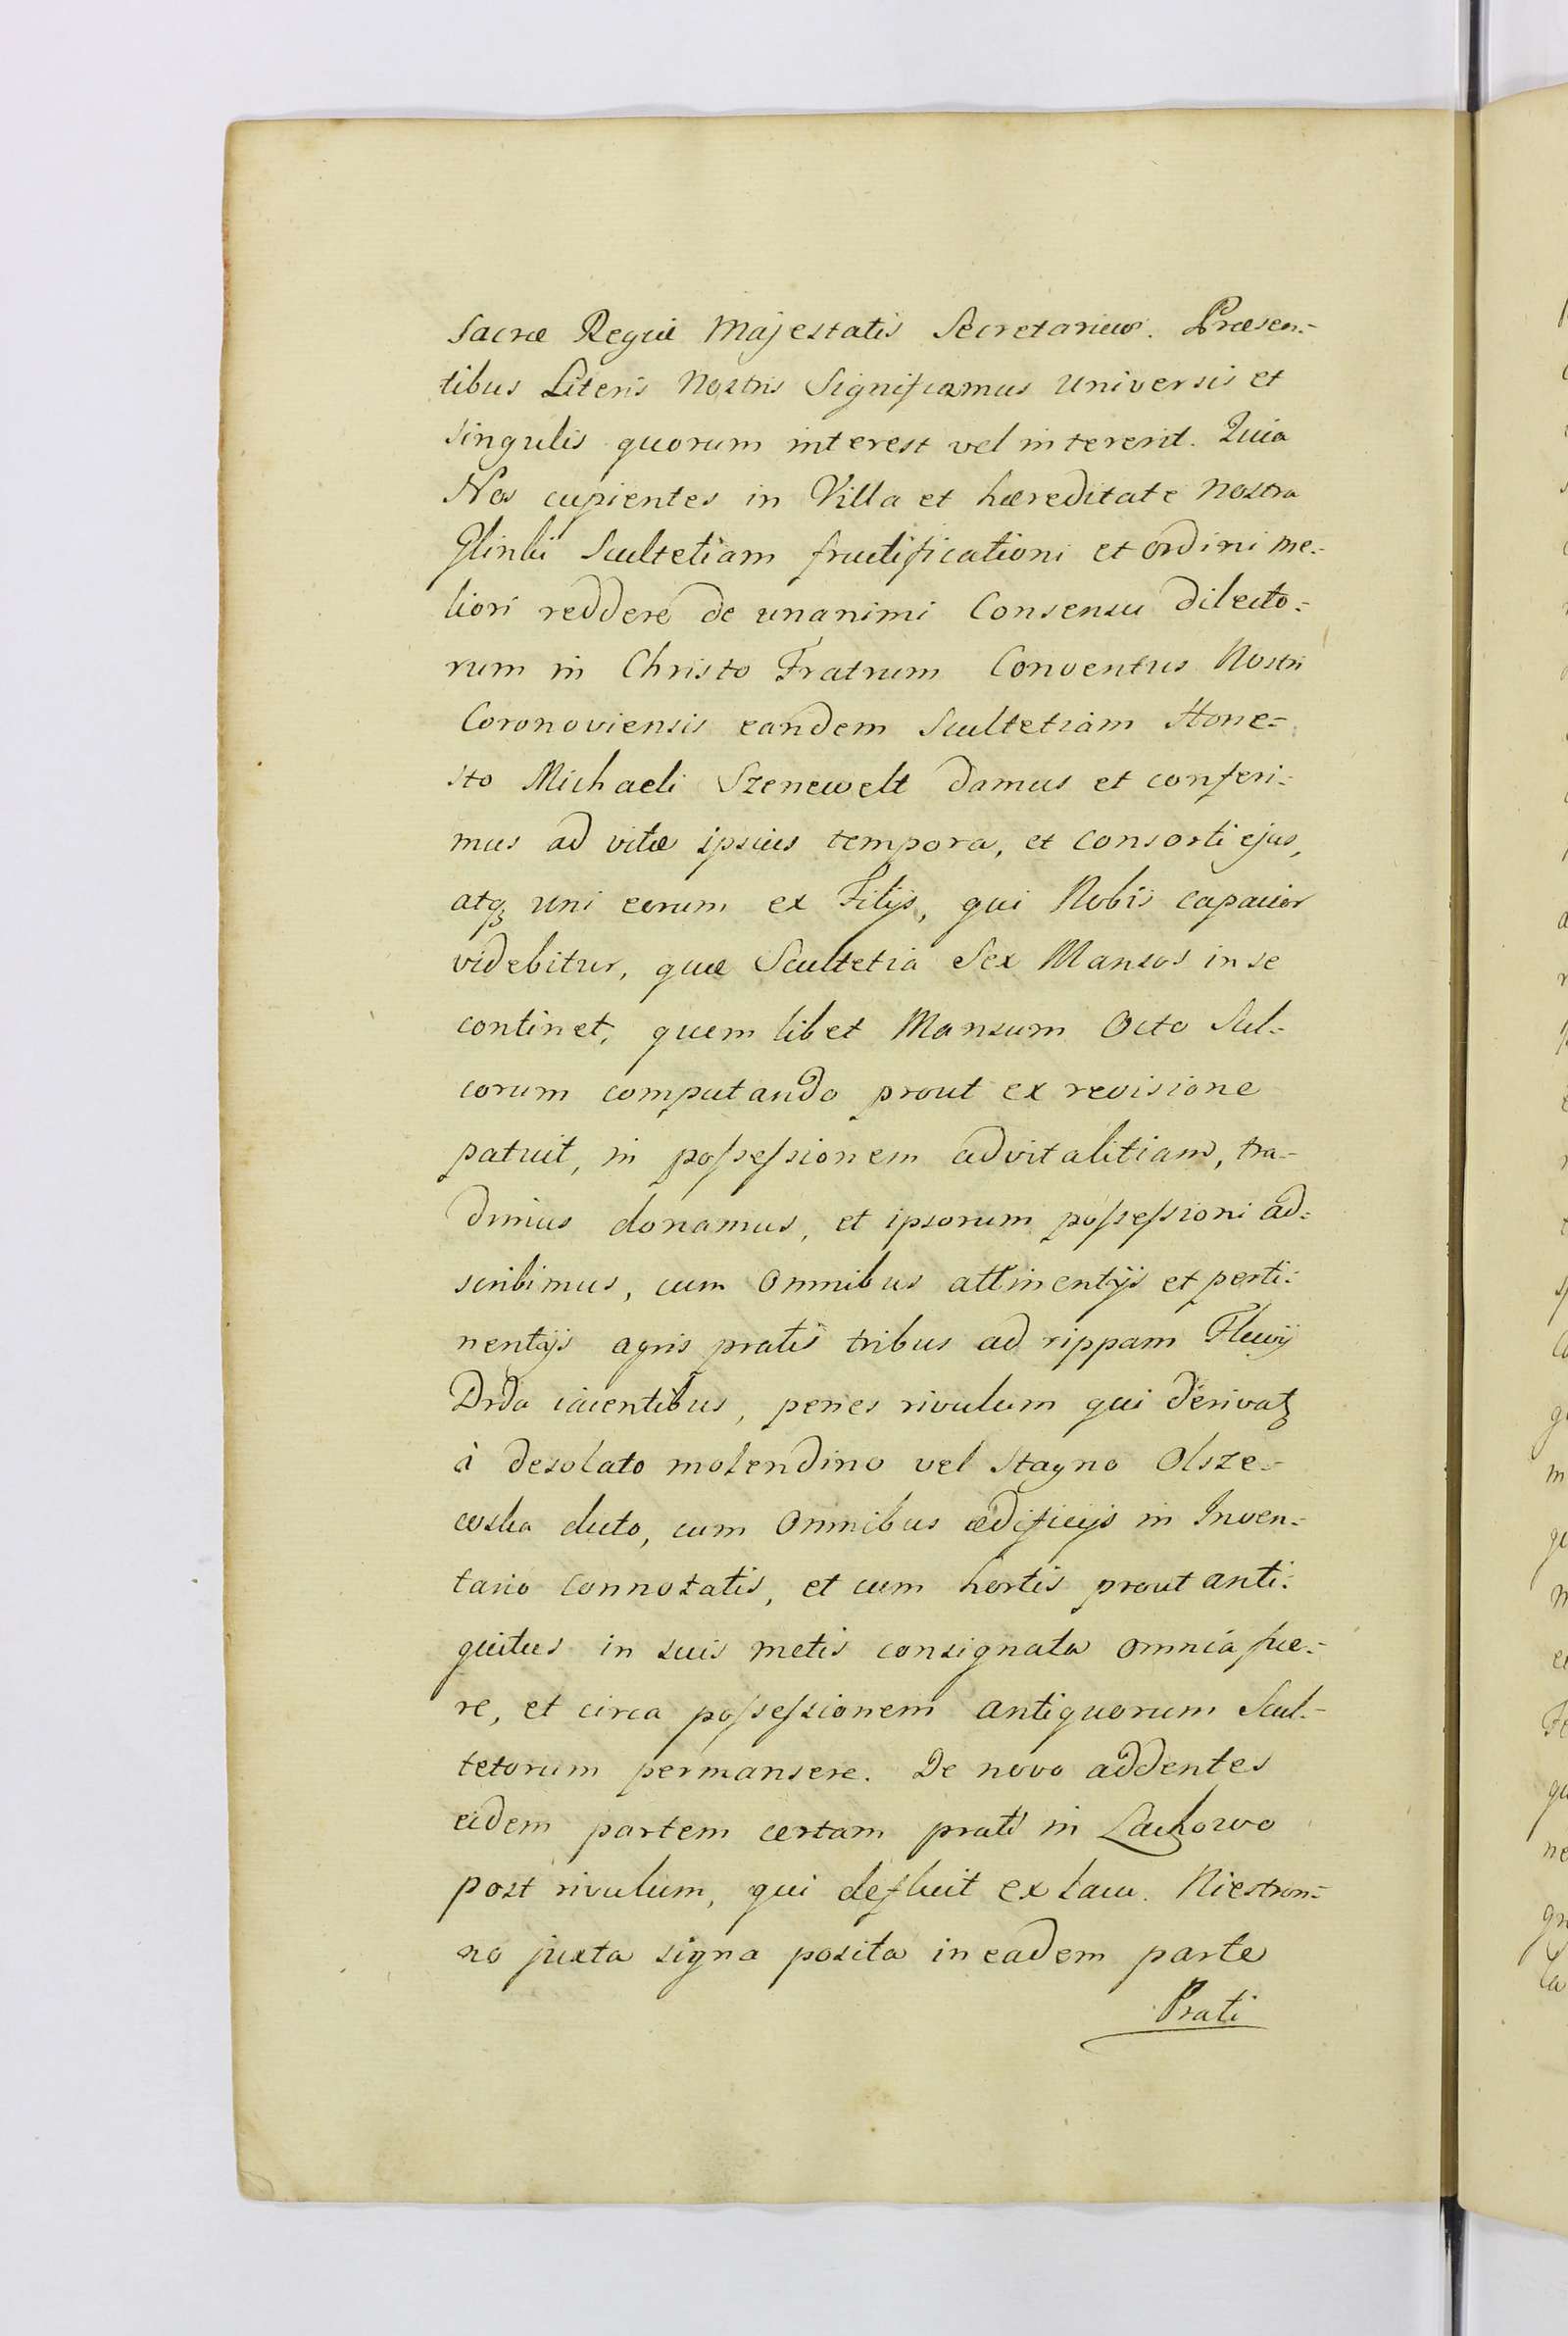 Sacræ Regiæ Majestatis Secretarius. Præsen-
tibus Literis Nostris Significamus Universis et
singulis quorum interest vel intererit. Quia
Nos cupientes in Villa et hæreditate nostra
Glinki Scultetiam fructificationi et ordini me-
liori reddere de unanimi Consensu dilecto-
rum in Christo Fratrum Conventus Nostri
Coronoviensis eandem Scultetiam Hone-
sto Michaeli Szenewelt damus et conferi-
mus ad vitæ ipsius tempora, et consorti ejus,
atqꝫ uni eorum ex Filijs, qui Nobis capacior
videbitur, quæ Scultetia Sex Mansos in se
continet, quem libet Mansum Octo Sul-
corum computando prout ex revisione
patuit, in poſseſsionem advitalitiam, tra-
dimus donamus, et ipsorum poſseſsioni ad-
scribimus, cum Omnibus attinentijs et perti-
nentijs agris pratis tribus ad rippam Fluvij
Drda iacentibus, penes rivulum qui derivatꝫ
à desolato molendino vel stagno Olsze-
wska dicto, cum Omnibus ædificijs in Inven-
tario connotatis, et cum hortis prout anti-
quitus in suis metis consignata omnia fue-
re, et circa poſseſsionem antiquorum Scul-
tetorum permansere. De novo addentes
eidem partem certam prati in Lachowo
post rivulum, qui defluit ex lacu Niestron-
no juxta signa posita in eadem parte
Prati